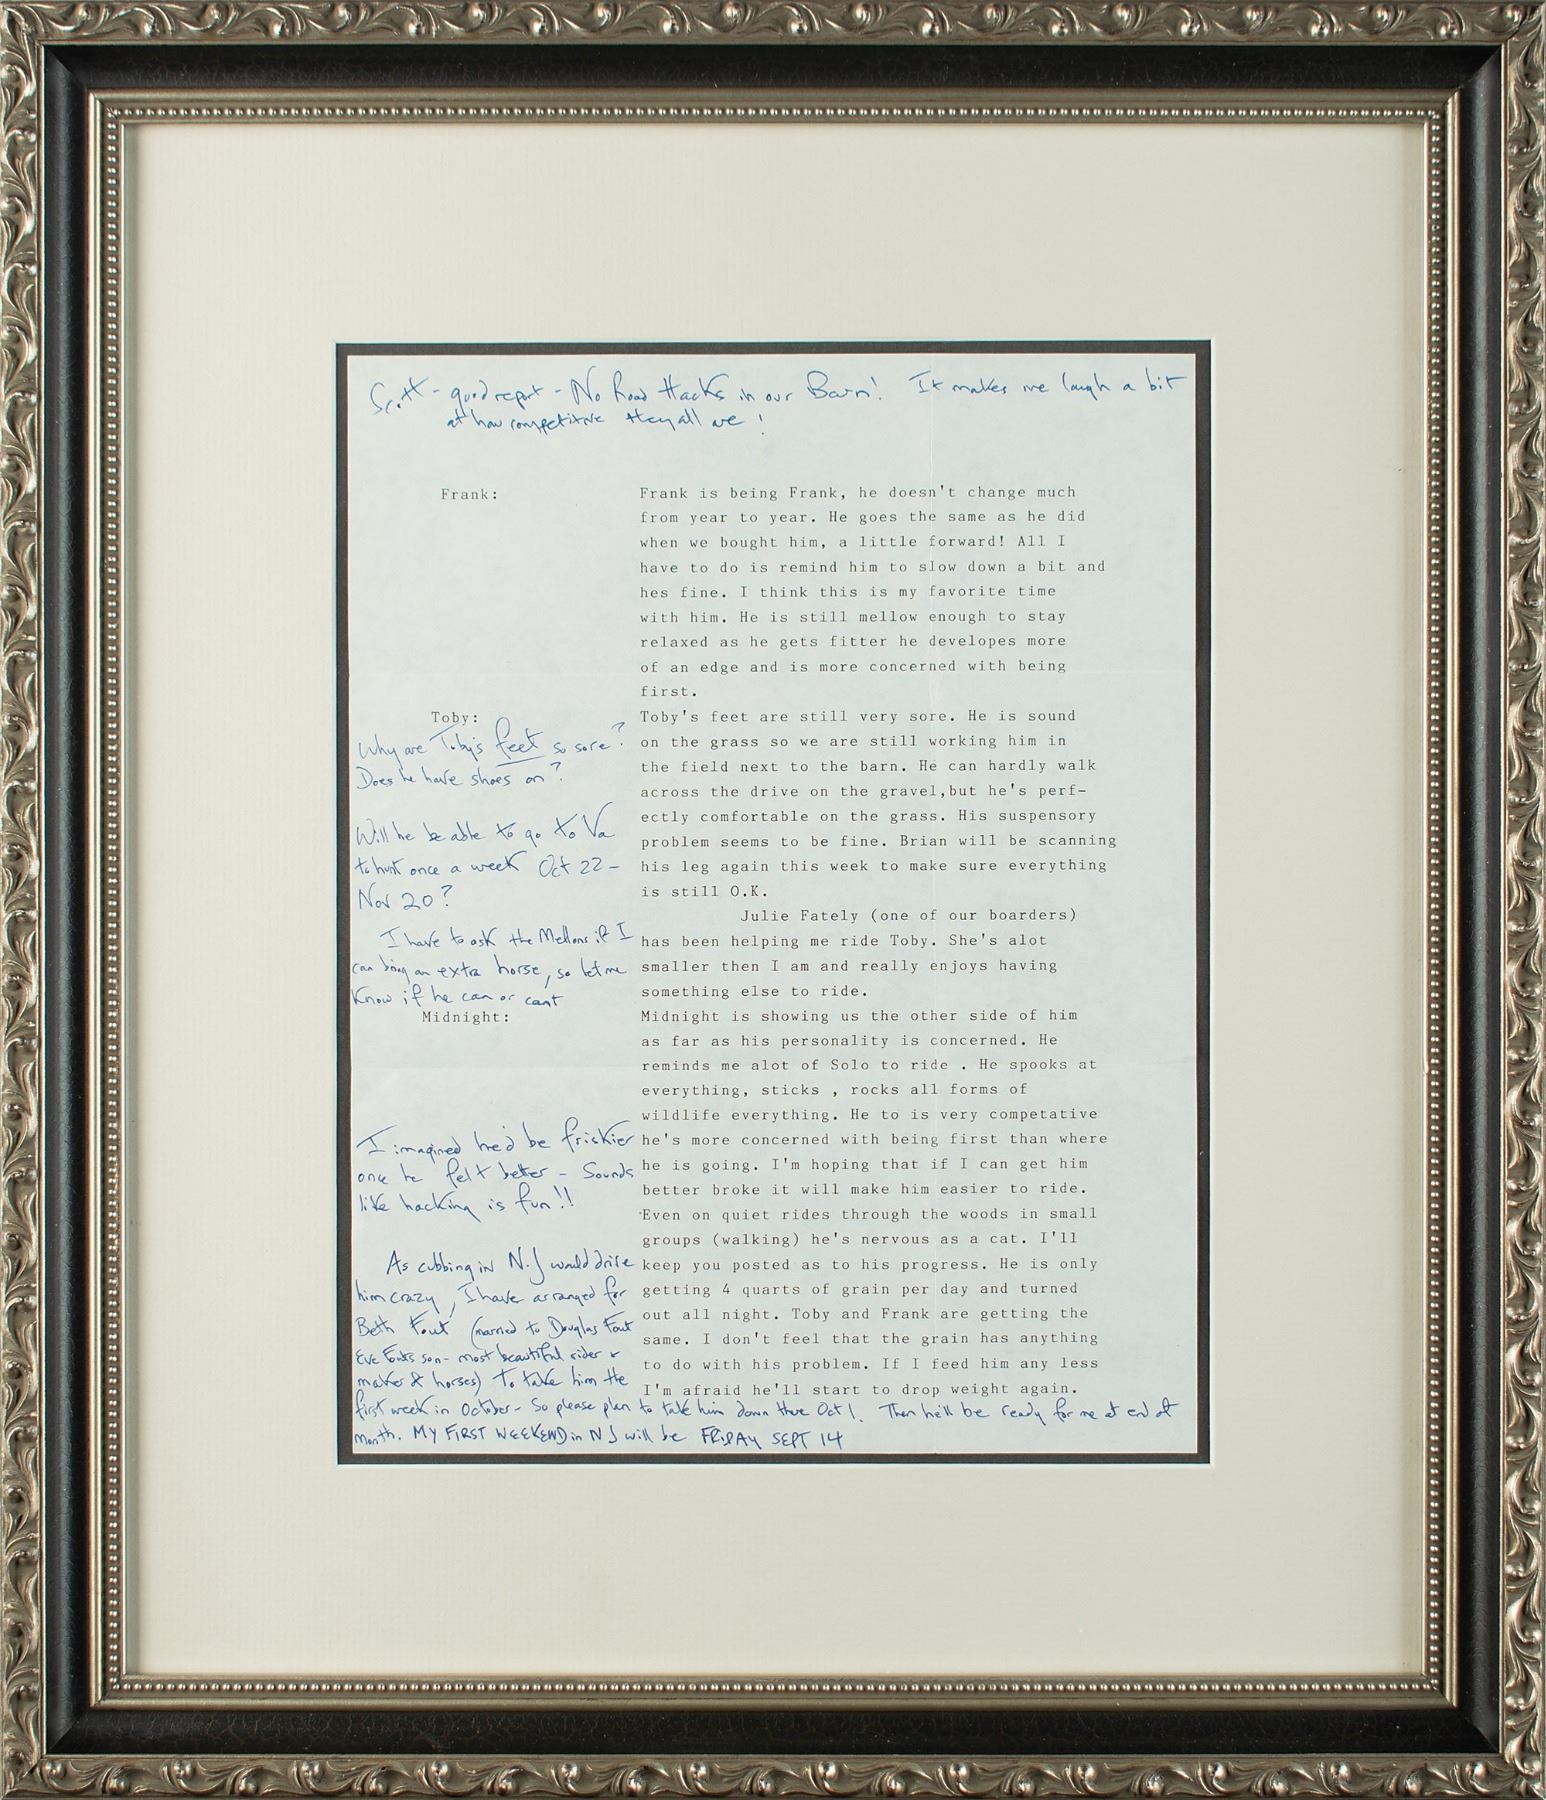 Scott - good report - No Road Hacks in our Barn! It makes me laugh a bit
at how competitive they all are!
Frank:
Frank is being Frank, he doesn't change much
from year to year. He goes the same as he did
when we bought him, a little forward! All I
have to do is remind him to slow down a bit and
hes fine. I think this is my favorite time
with him. He is still mellow enough to stay
relaxed as he gets fitter he developes more
of an edge and is more concerned with being
first.
Toby:
Why are Toby's feet so sore?
Does he have shoes on?
Will he be able to go to Va
to hunt once a week Oct 22 -
Nov 20?
I have to ask the Mellons if I
can bring an extra horse, so let me
know if he can or cant
Toby's feet are still very sore. He is sound
on the grass so we are still working him in
the field next to the barn. He can hardly walk
across the drive on the gravel,but he's perf-
ectly comfortable on the grass. His suspensory
problem seems to be fine. Brian will be scanning
his leg again this week to make sure everything
is still O.K.
Julie Fately (one of our boarders)
has been helping me ride Toby. She's alot
smaller then I am and really enjoys having
something else to ride.
Midnight:
Midnight is showing us the other side of him
as far as his personality is concerned. He
reminds me alot of Solo to ride . He spooks at
everything, sticks , rocks all forms of
wildlife everything. He to is very competative
he's more concerned with being first than where
he is going. I'm hoping that if I can get him
better broke it will make him easier to ride.
Even on quiet rides through the woods in small
groups (walking) he's nervous as a cat. I'll
keep you posted as to his progress. He is only
getting 4 quarts of grain per day and turned
out all night. Toby and Frank are getting the
same. I don't feel that the grain has anything
to do with his problem. If I feed him any less
I'm afraid he'll start to drop weight again.
I imagined he'd be friskier
once he felt better - Sounds
like hacking is fun!!
As cubbing in N.J would drive
him crazy, I have arranged for
Beth Fout (married to Douglas Fout
Eve Fouts son - most beautiful rider &
maker of horses) to take him the
first week in October - So please plan to take him down there Oct 1. Then he'll be ready for me at end of
month. MY FIRST WEEKEND in NJ will be FRIDAY SEPT 14